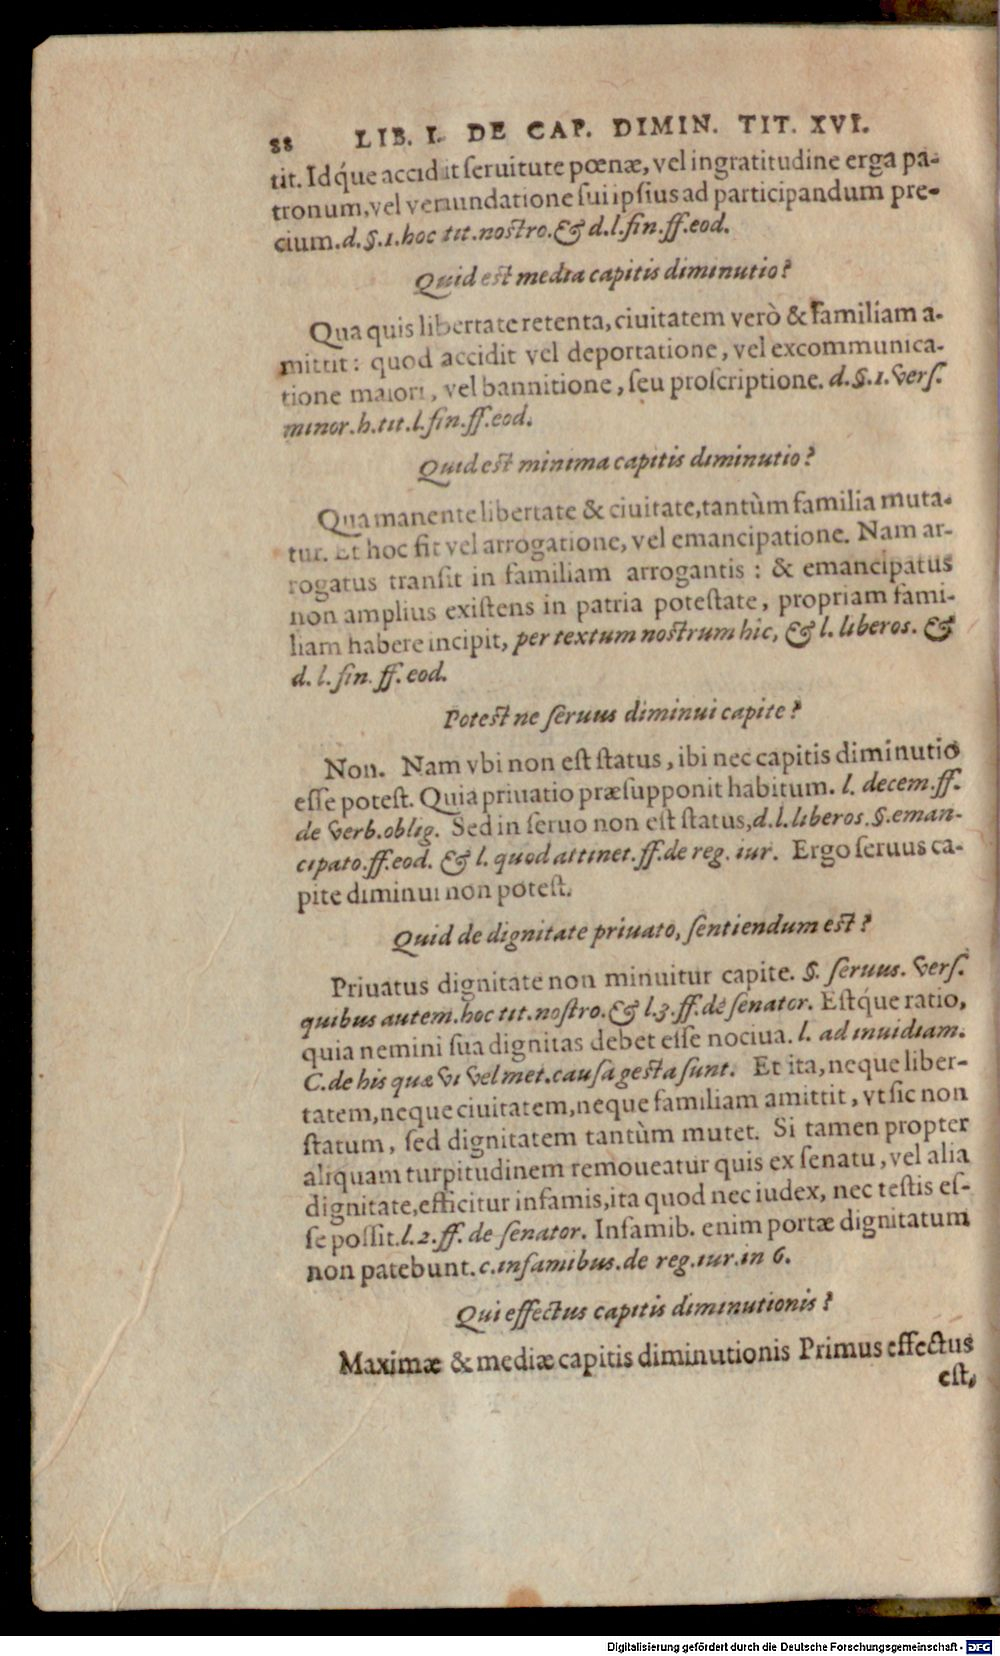 88 LIB. I. DE CAP. DIMIN. TIT. XVI.
tit. Idq́ue accidit ſeruitute pœnæ, vel ingratitudine erga pa-
tronum, vel venundatione ſui ipſius ad participandum pre-
cium. d. §. 1. hoc tit. noſtro. & d. l. fin. ff. eod.
Quid eſt media capitis diminutio?
Qua quis libertate retenta, ciuitatem verò & familiam a-
mittit: quod accidit vel deportatione, vel excommunica-
tione maiori, vel bannitione, ſeu proſcriptione. d. §. 1. verſ.
minor. h. tit. l. fin. ff. eod.
Quid eſt minima capitis diminutio?
Qua manente libertate & ciuitate, tantùm familia muta-
tur. Et hoc fit vel arrogatione, vel emancipatione. Nam ar-
rogatus tranſit in familiam arrogantis: & emancipatus
non amplius exiſtens in patria poteſtate, propriam fami-
liam habere incipit, per textum noſtrum hic, & l. liberos. &
d. l. fin. ff. eod.
Poteſt ne ſeruus diminui capite?
Non. Nam vbi non eſt ſtatus, ibi nec capitis diminutio
eſſe poteſt. Quia priuatio præſupponit habitum. l. decem. ff.
de verb. oblig. Sed in ſeruo non eſt ſtatus, d. l. liberos. §. eman-
cipato. ff. eod. & l. quod attinet. ff. de reg. iur. Ergo ſeruus ca-
pite diminui non poteſt.
Quid de dignitate priuato, ſentiendum eſt?
Priuatus dignitate non minuitur capite. §. ſeruus. verſ.
quibus autem. hoc tit. noſtro. & l. 3. ff. de ſenator. Eſtq́ue ratio,
quia nemini ſua dignitas debet eſſe nociua. l. ad inuidiam.
C. de his quæ vi vel met. cauſa geſta ſunt. Et ita, neque liber-
tatem, neque ciuitatem, neque familiam amittit, vt ſic non
ſtatum, ſed dignitatem tantùm mutet. Si tamen propter
aliquam turpitudinem remoueatur quis ex ſenatu, vel alia
dignitate, efficitur infamis, ita quod nec iudex, nec teſtis eſ-
ſe poſſit. l. 2. ff. de ſenator. Infamib. enim portæ dignitatum
non patebunt. c. infamibus. de reg. iur. in 6.
Qui effectus capitis diminutionis?
Maximæ & mediæ capitis diminutionis Primus effectus
eſt,
Digitalisierung gefördert durch die Deutsche Forschungsgemeinschaft - DFG